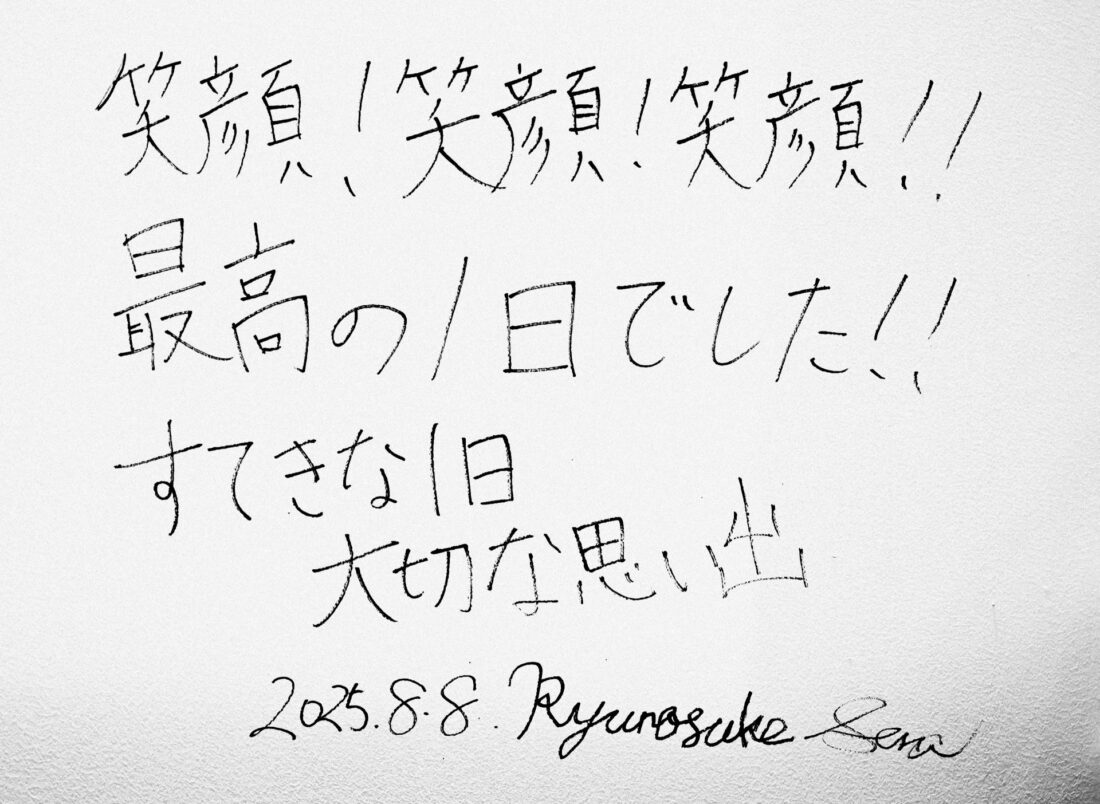 笑顔!笑顔!笑顔!!
最高の1日でした!!
すてきな1日
大切な思い出
2025.8.8. Ryunosuke Sera